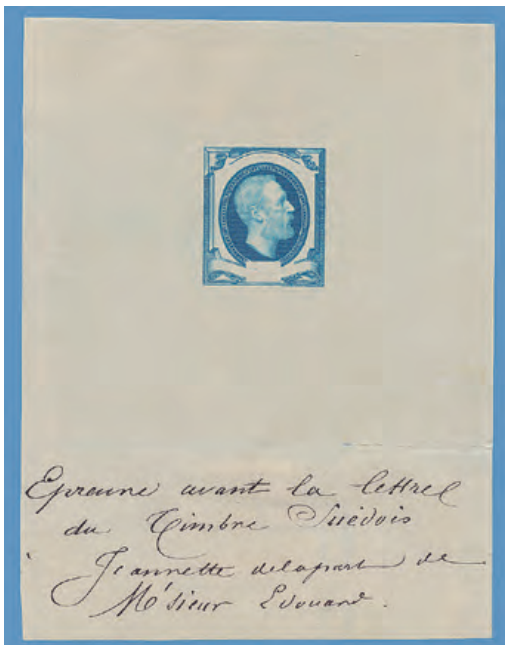 Epreuve avant la lettre
du Timbre Suédois
Jeannette de la part de
M'sieur Edouard.